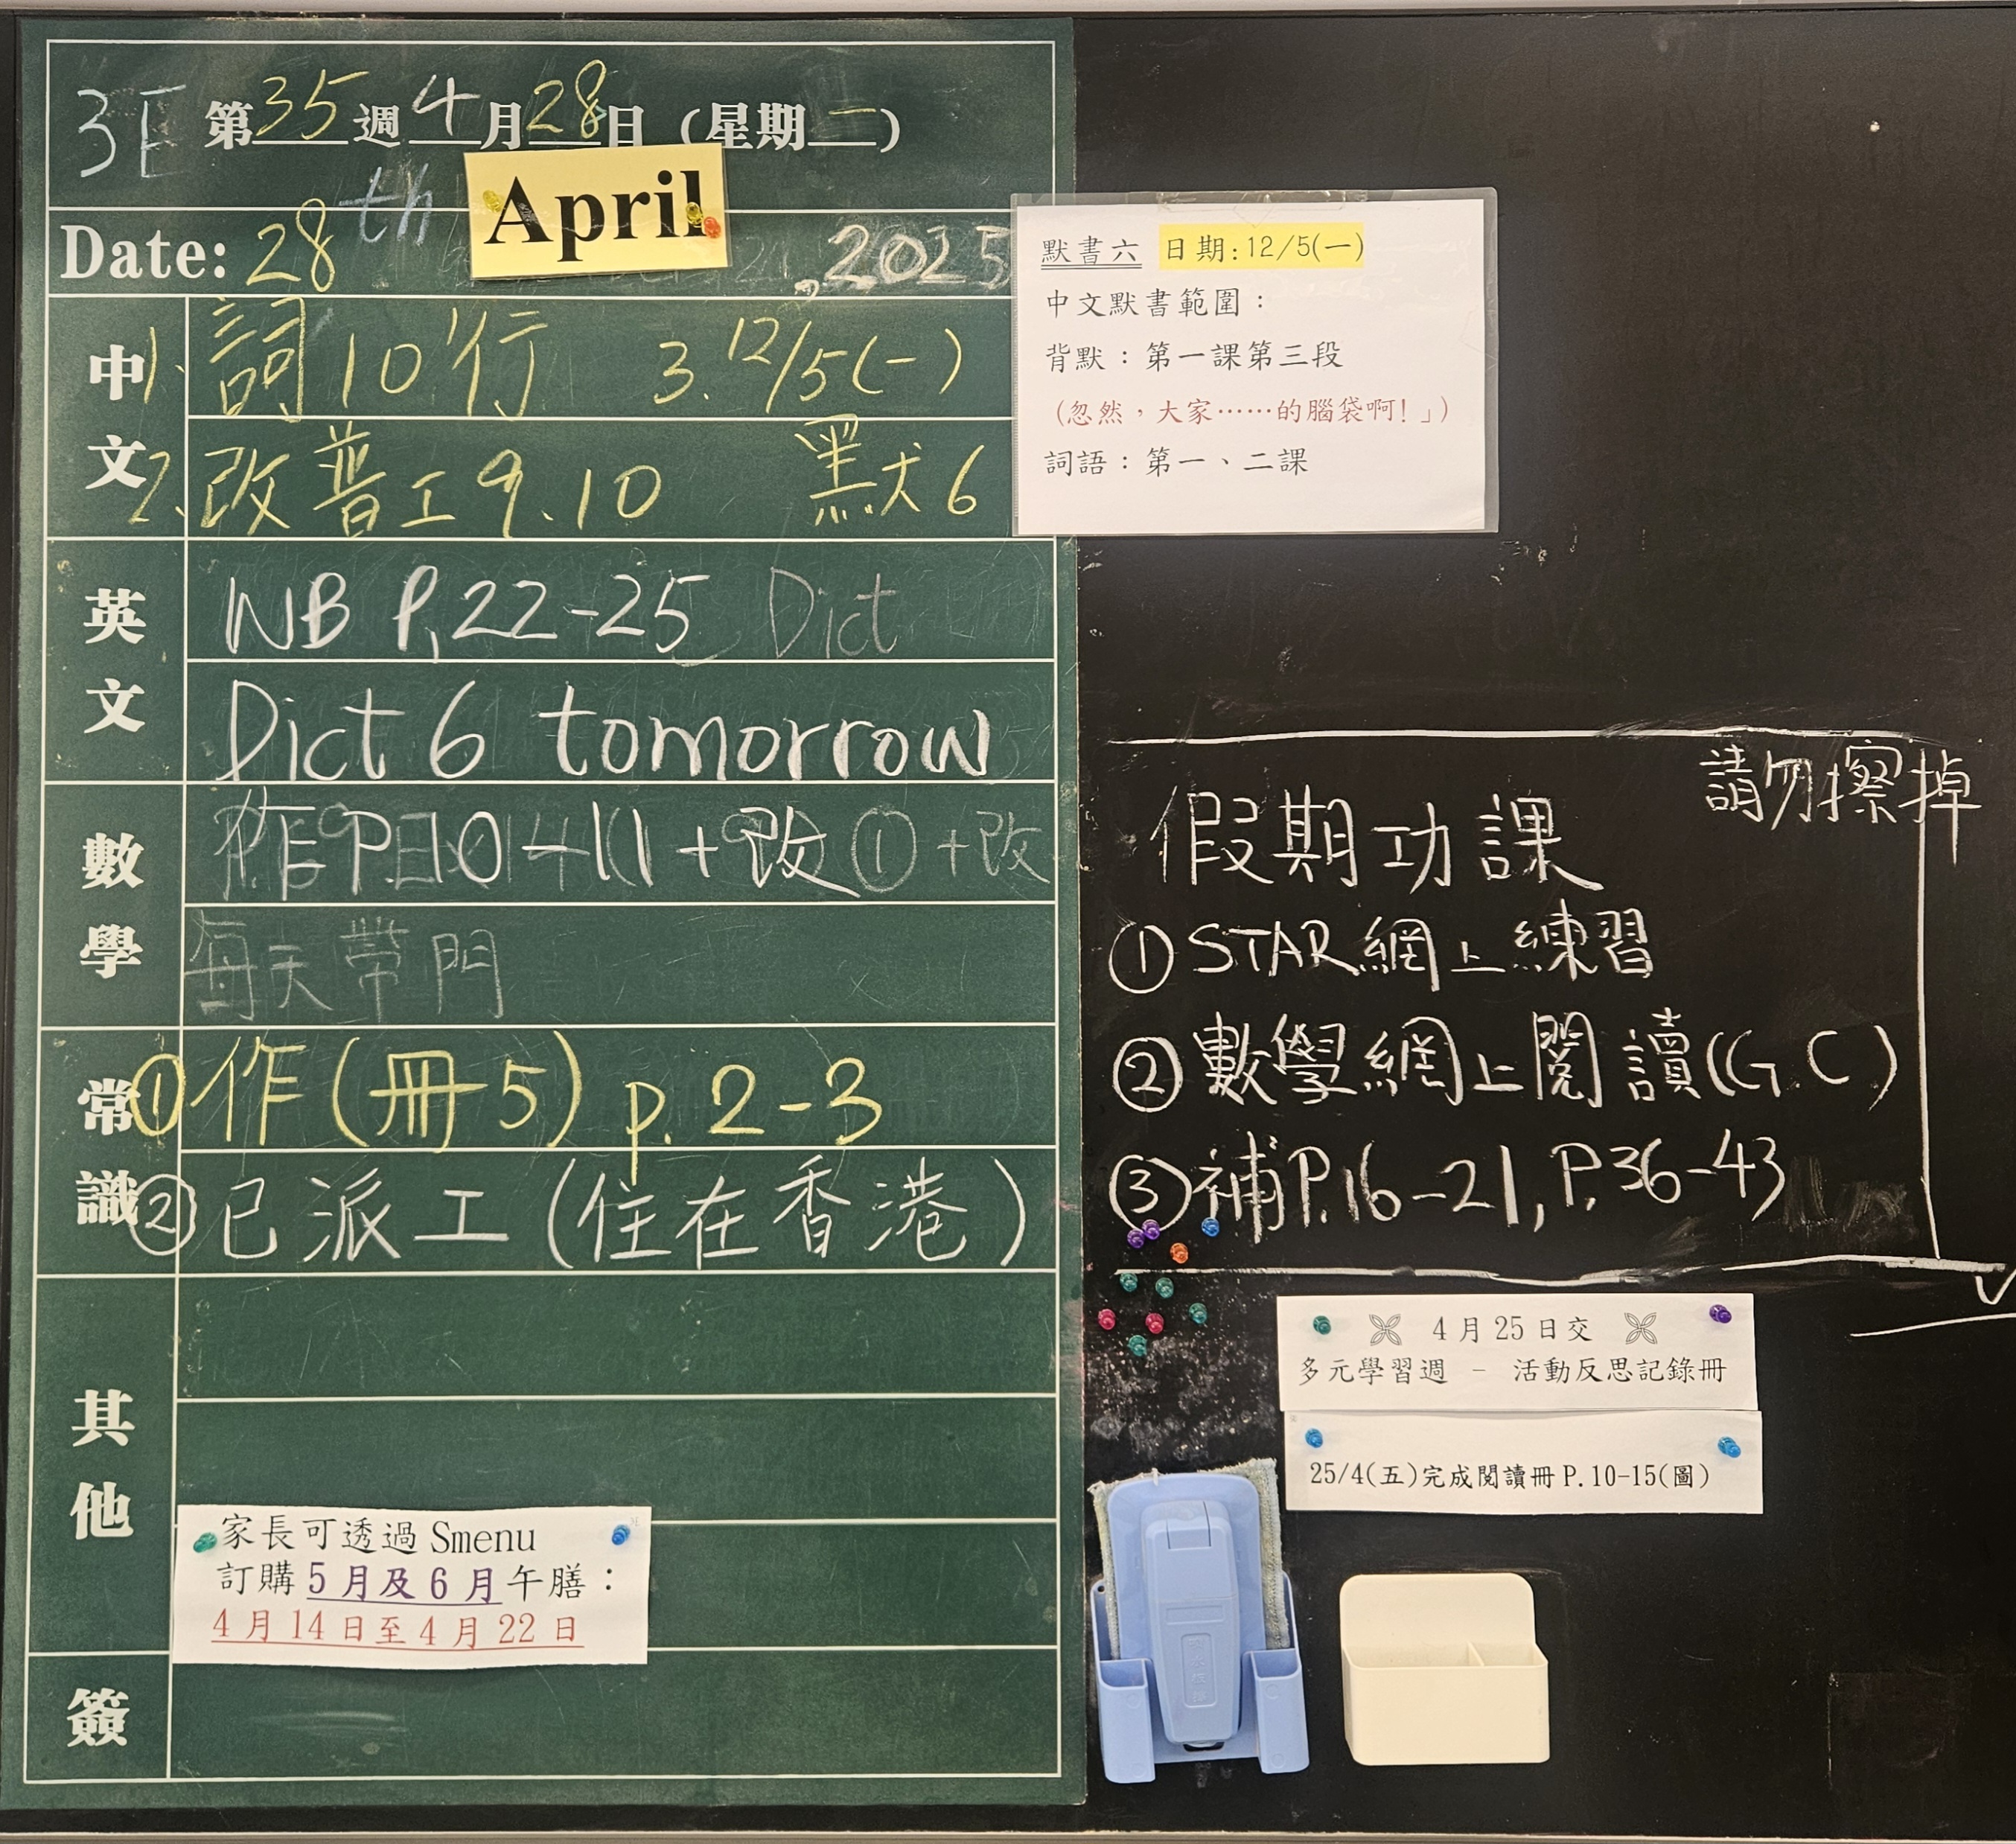 3E 第35週4月28日(星期一)
Date: 28th April, 2025
中文
1. 詞10行 3. 12/5(一)
2. 改普工9.10 默6
英文
WB P.22-25 Dict
Dict 6 tomorrow
數學
作P.10-11+改①+改
每天帶門
常識
①作(冊5) p.2-3
②已派工(住在香港)
其他
家長可透過Smenu
訂購5月及6月午膳：
4月14日至4月22日
簽
默書六 日期:12/5(一)
中文默書範圍：
背默：第一課第三段
(忽然，大家……的腦袋啊!」)
詞語：第一、二課
請勿擦掉
假期功課
①STAR網上練習
②數學網上閱讀(G.C)
③補P.16-21, P.36-43
4月25日交
多元學習週 – 活動反思記錄冊
25/4(五)完成閱讀冊P.10-15(圖)